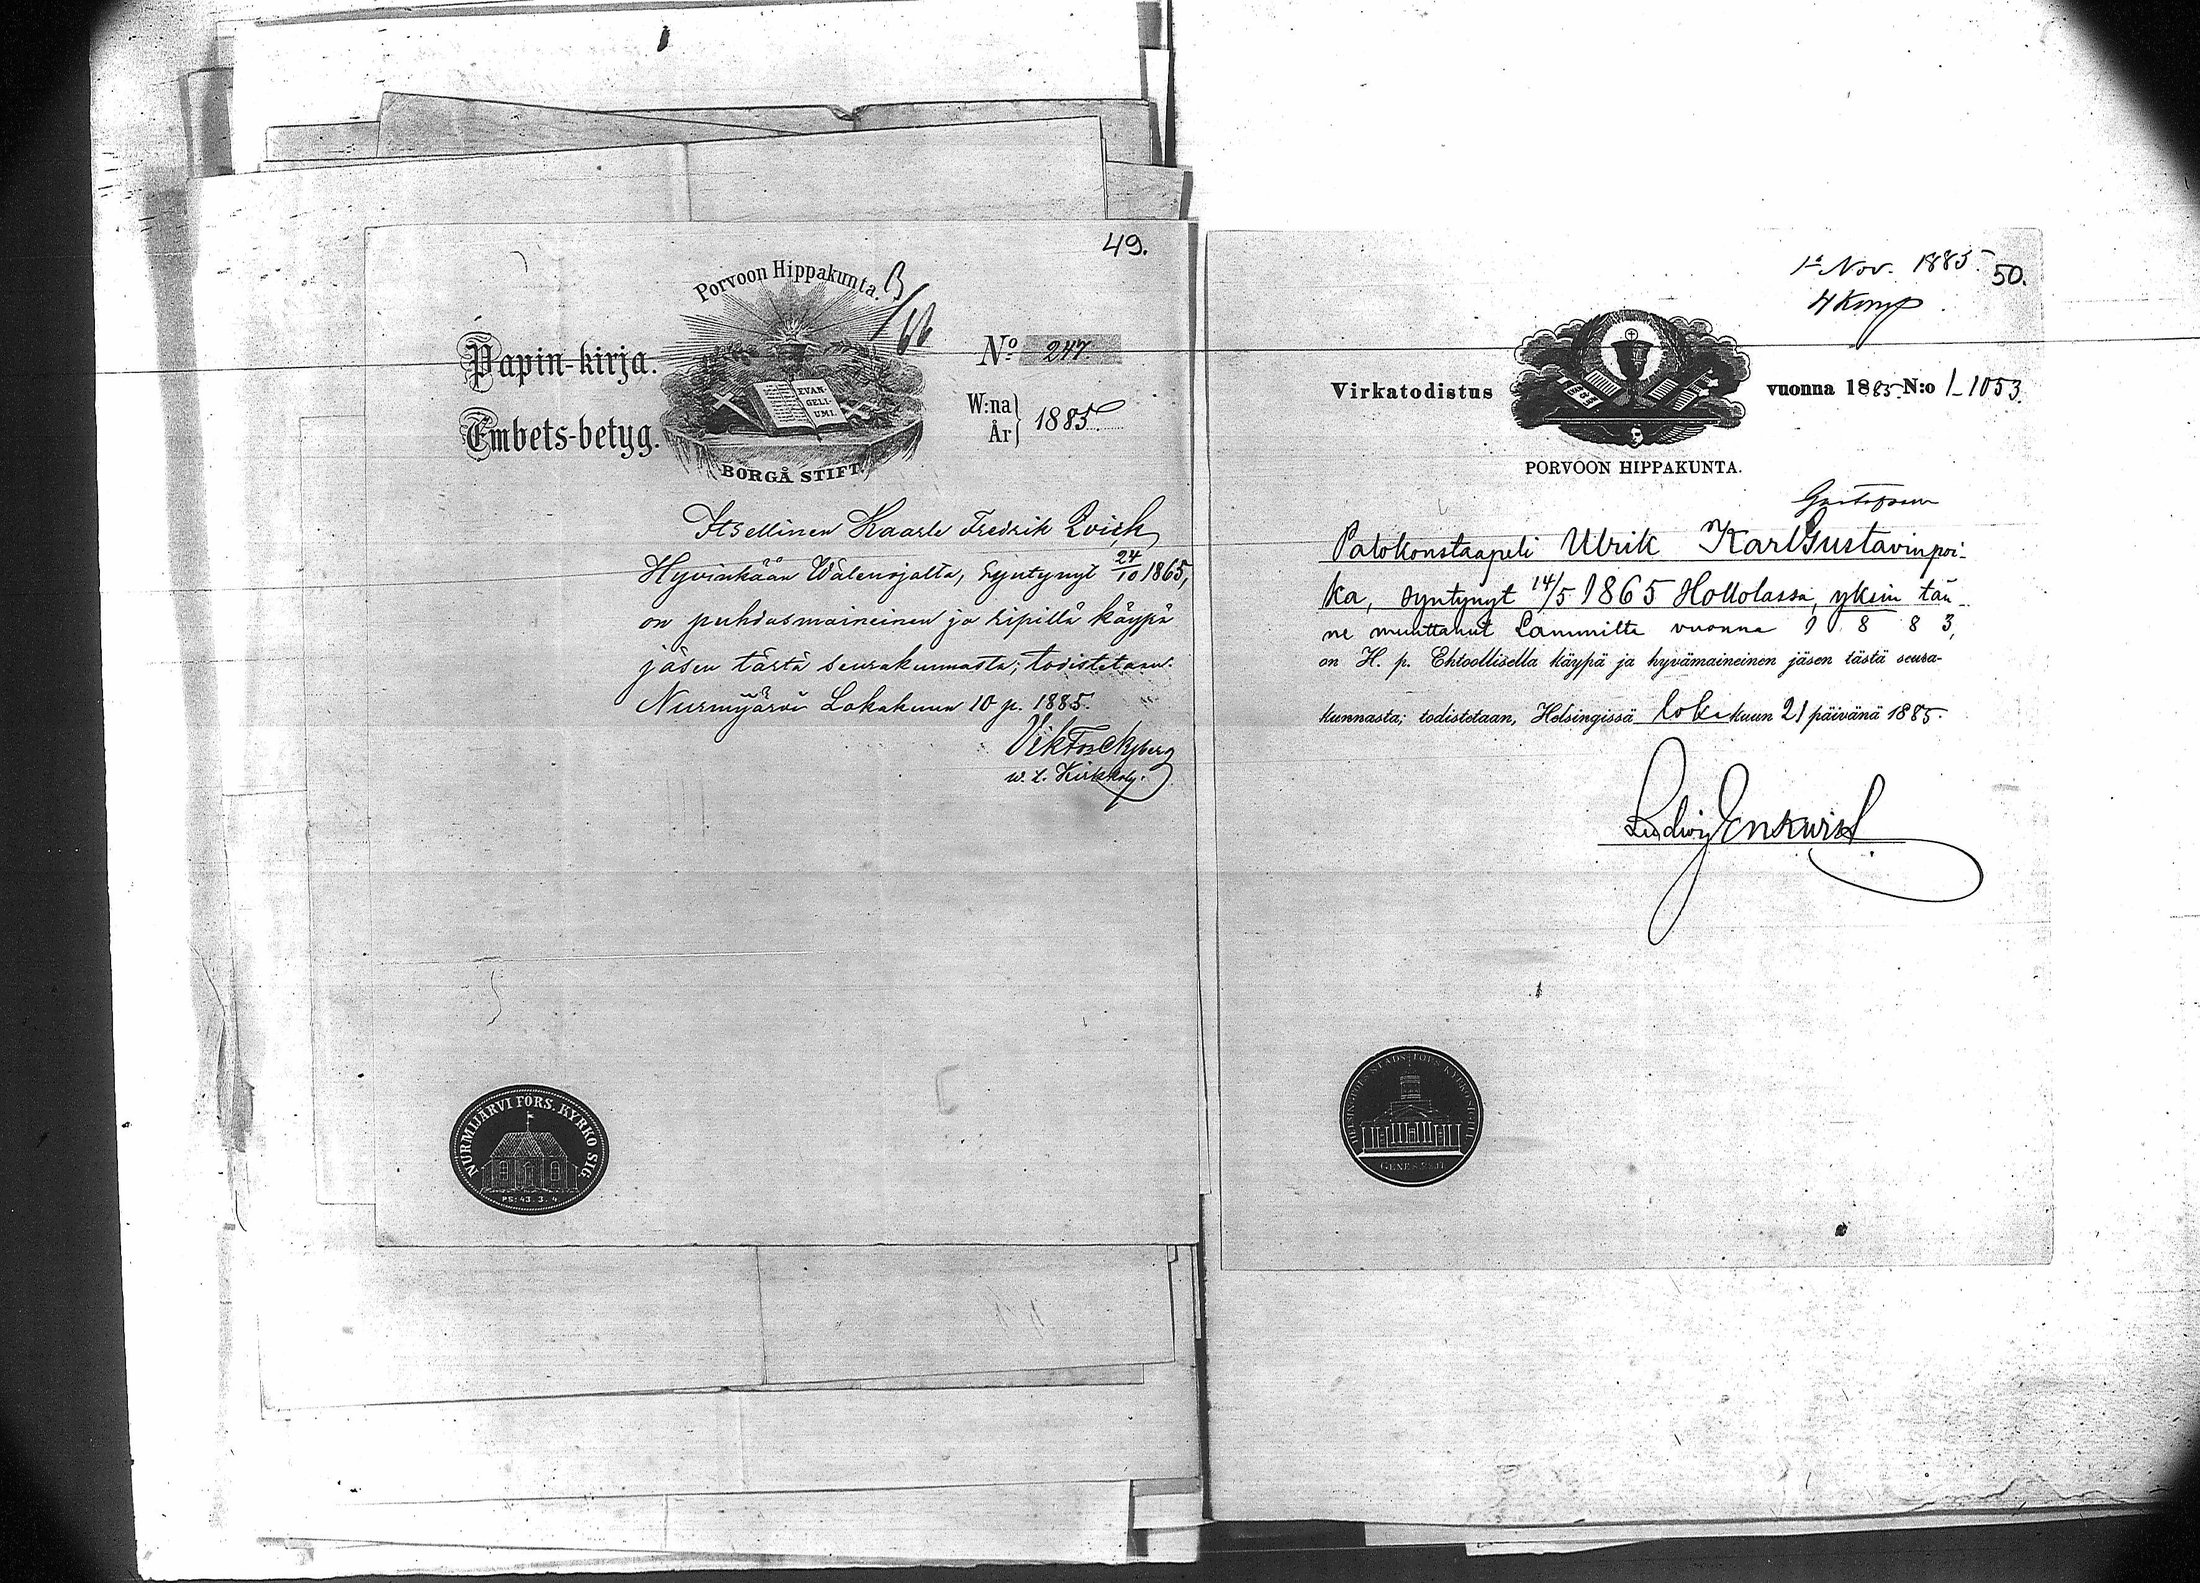 49.
Porvoon Hippakunta.
B/66
Papin-kirja.
Embets-betyg.
EVAN-
GELI-
UMI.
BORGÅ STIFT.
No 247
W:na
År
1885
Itsellinen Kaarle Fredrik Qvick
Hyvinkään Wälenojalta, syntynyt 24/10 1865,
on puhdasmaineinen ja ripillä käypä
jäsen tästä seurakunnasta; todistetaan.
Nurmijärvi Lokakuun 10 p. 1885.
Viktor
w. t. Kirkkoh.
NURMIJÄRVI FÖRS. KYRKO SIG.
PS: 43. 3. 4
1a Nov. 1885.
50.
4 Komp
Virkatodistus
vuonna 1885 N:o 1053.
PORVOON HIPPAKUNTA.
Gustafsson
Palokonstaapeli Ulrik Karl Gustavinpoi-
ka, syntynyt 14/5 1865 Hollolassa, yksin tän-
ne muuttanut Lammilta vuonna 1 8 8 3,
on H. p. Ehtoollisella käypä ja hyvämaineinen jäsen tästä seura-
kunnasta; todistetaan, Helsingissä lokakuun 21 päivänä 1885.
Ludvig Enkvist
HELSINGFORS STADS FÖRS. KYRKOSIGILL